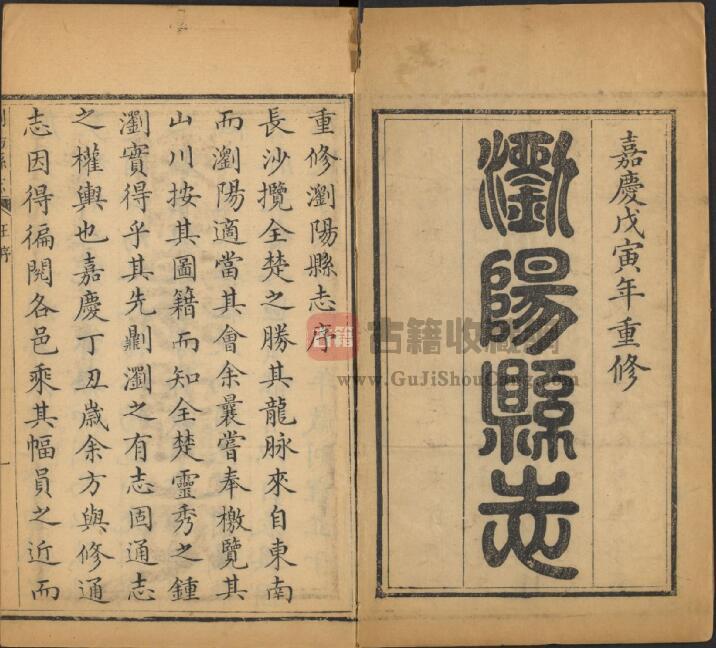 嘉慶戊寅年重修
瀏陽縣志
重修瀏陽縣志序
長沙攬全楚之勝其龍脉來自東南
而瀏陽適當其會余曩嘗奉檄覽其
山川按其圖籍而知全楚靈秀之鍾
瀏實得乎其先剿瀏之有志固通志
之權輿也嘉慶丁丑歲余方與修通
志因得徧閱各邑乘其幅員之近而
汪序
一
古籍
古籍收藏
www.GuJiShouCang.com